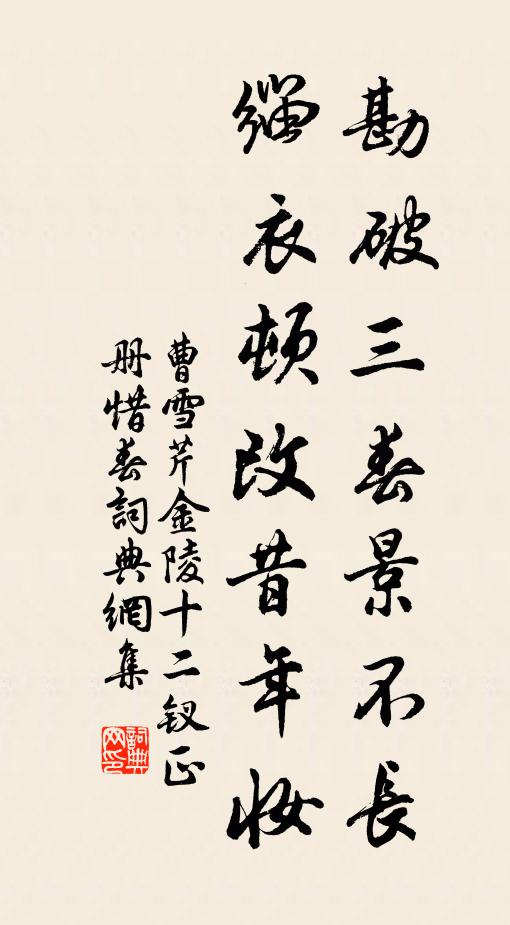 勘破三春景不長
緇衣頓改昔年妝
曹雪芹金陵十二釵正
册惜春詞典網集
詞典
网印